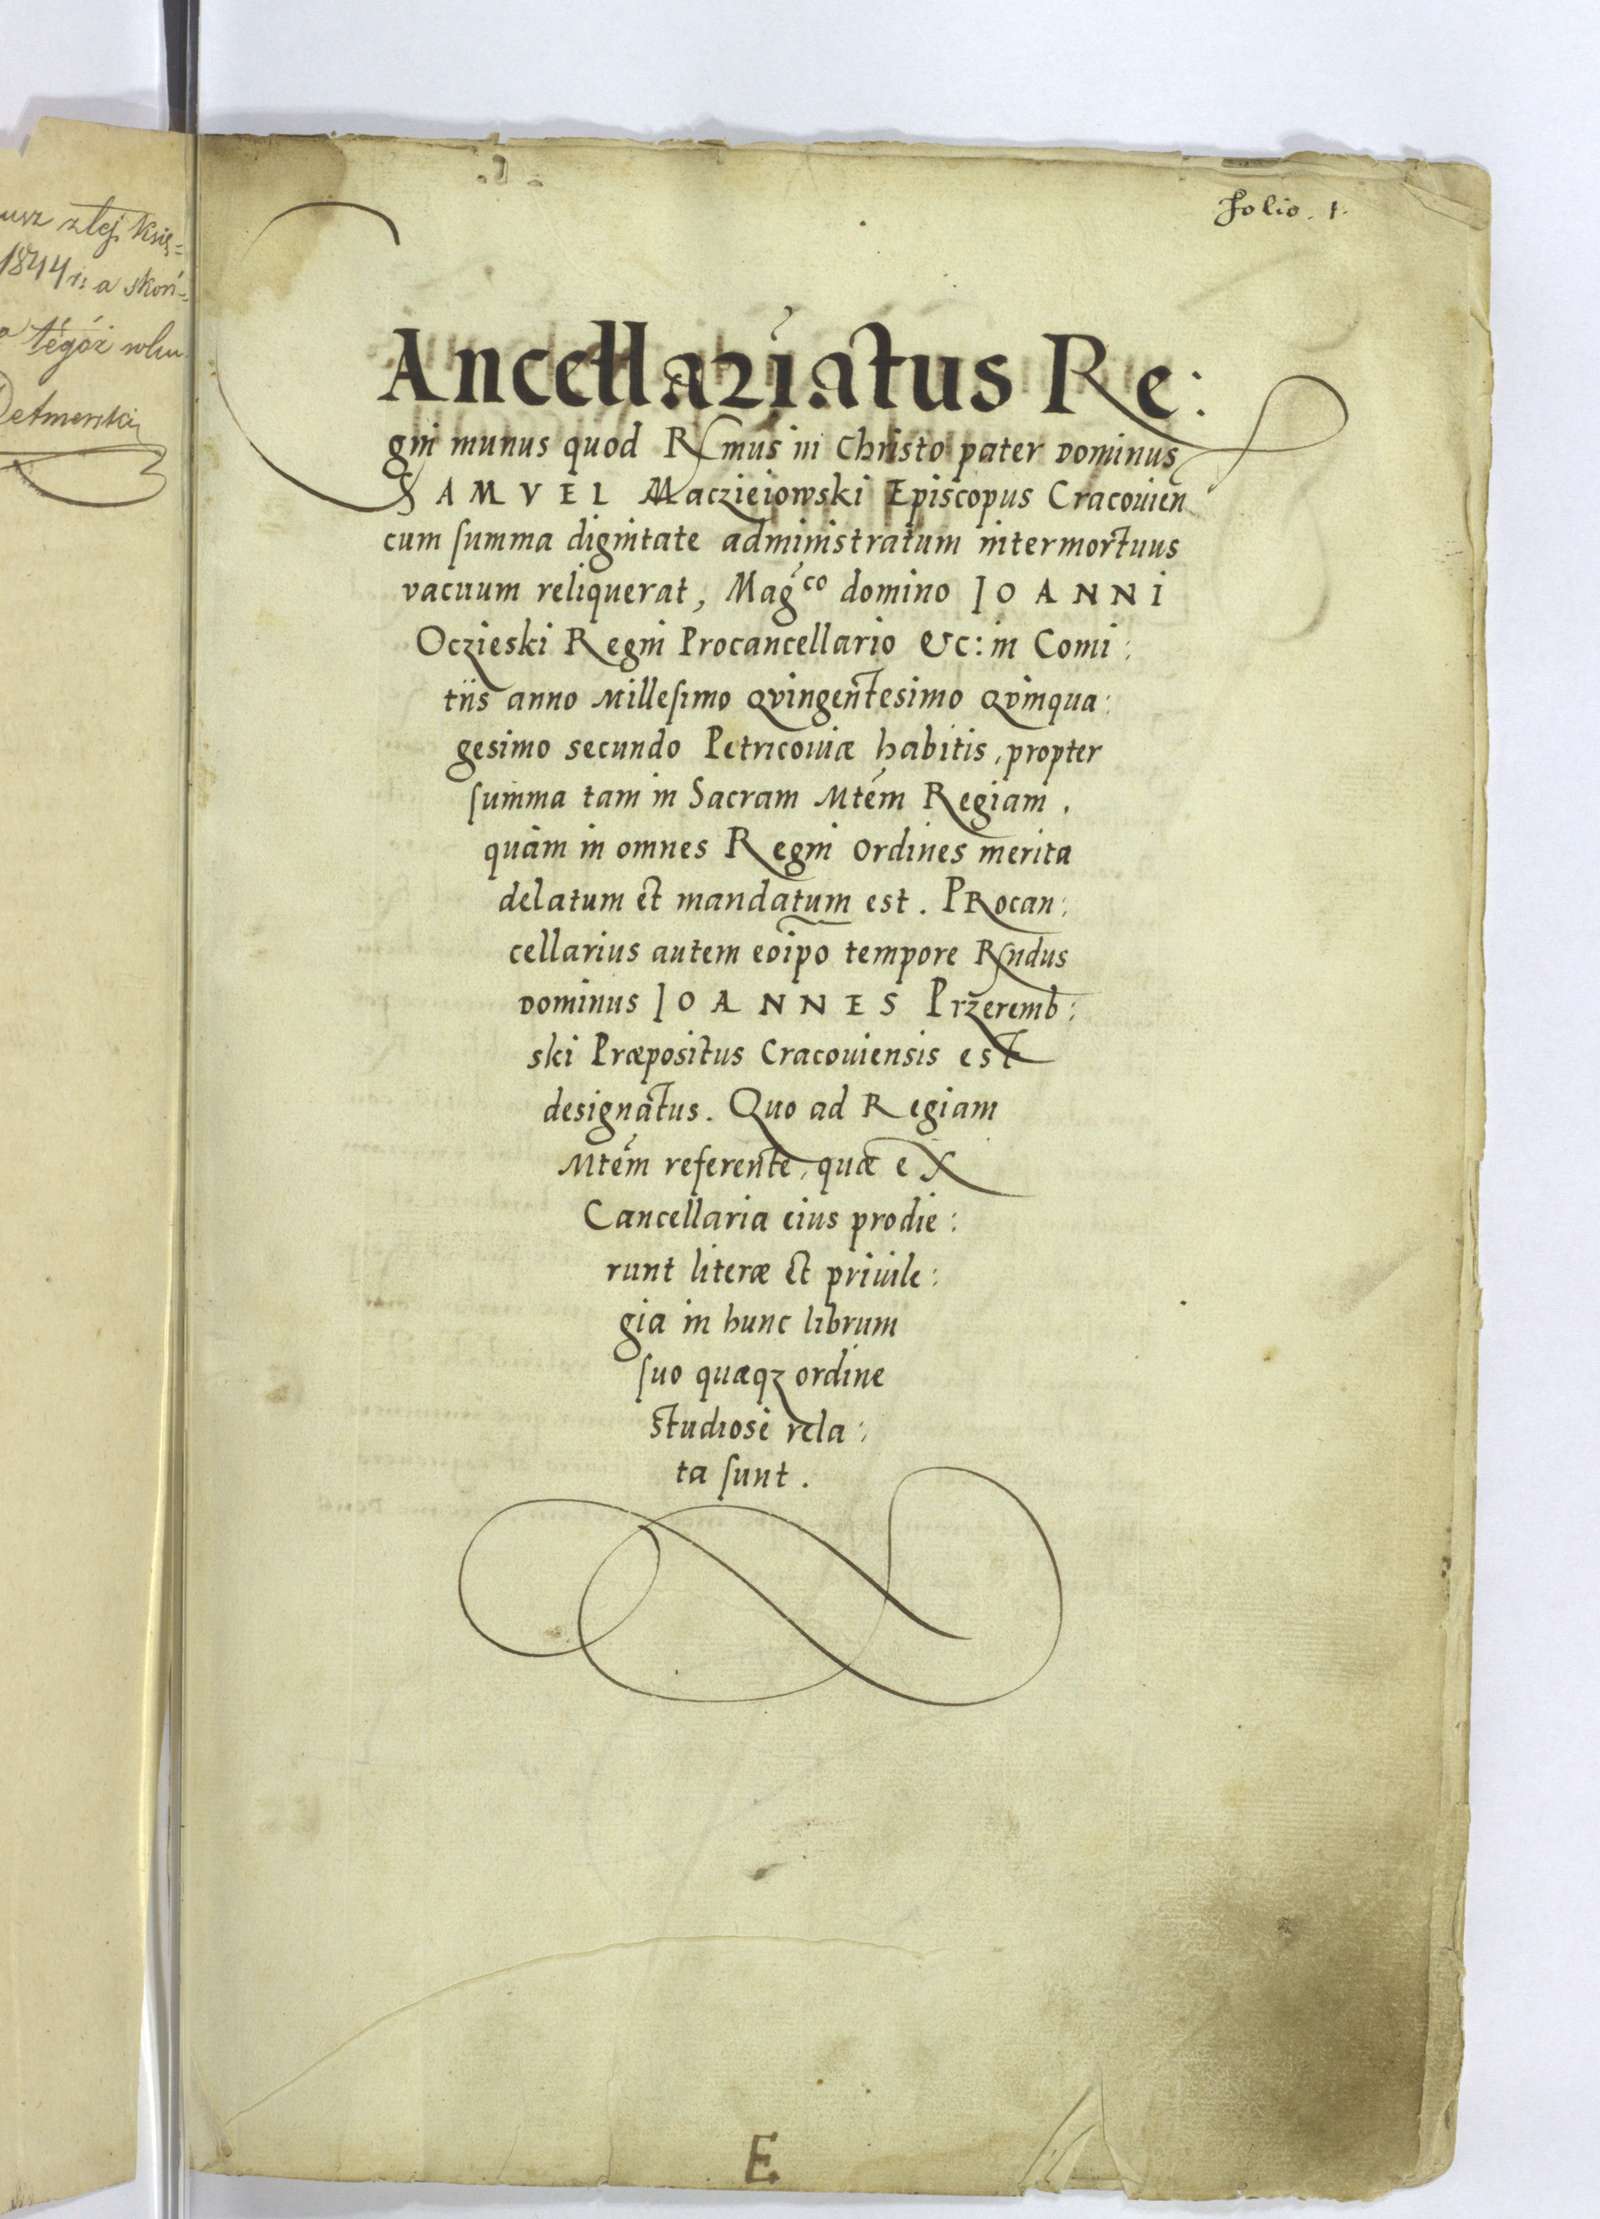 usz z tej Księ=
1844 r: a skoń=
tegóż roku
Detmerski
Folio . 1.
Ancellariatus Re:
gni munus quod Rmus in Christo pater dominus
SAMVEL Maczieiowski Episcopus Cracouien
cum summa dignitate administratum intermortuus
vacuum reliquerat, Magco domino IOANNI
Oczieski Regni Procancellario &c: in Comi:
tiis anno Millesimo Qvingentesimo Qvinqua:
gesimo secundo Petricouiæ habitis, propter
summa tam in Sacram Mtém Regiam,
quàm in omnes Regni ordines merita
delatum et mandatum est. PRocan:
cellarius autem eoipo tempore Rndus
dominus IOANNES Przeremb:
ski Præpositus Cracouiensis est
designatus. Quo ad Regiam
Mtém referente, quæ eX
Cancellaria eius prodie:
runt literæ et priuile:
gia in hunc librum
suo quæqz ordine
studiose rela:
ta sunt.
E